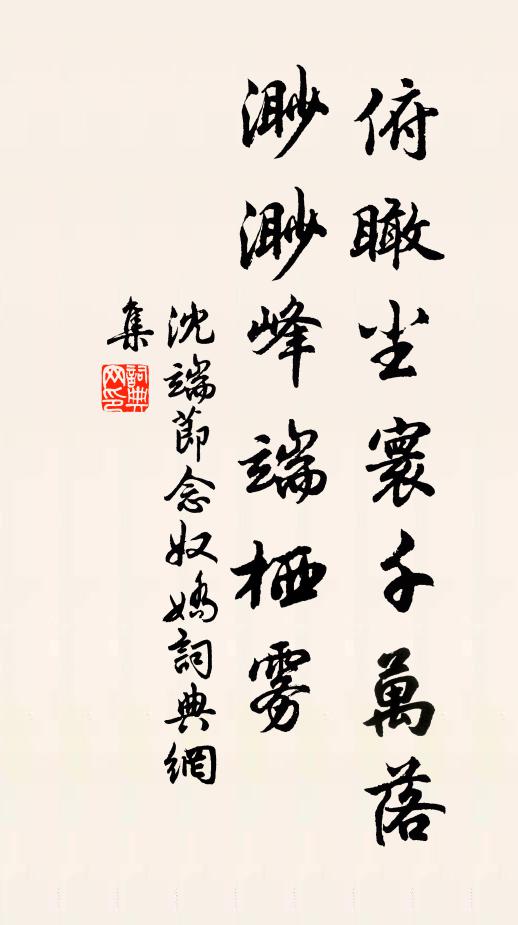 俯瞰尘寰千萬落
渺渺峰端栖雾
沈端節念奴嬌詞典網
集
詞典網印